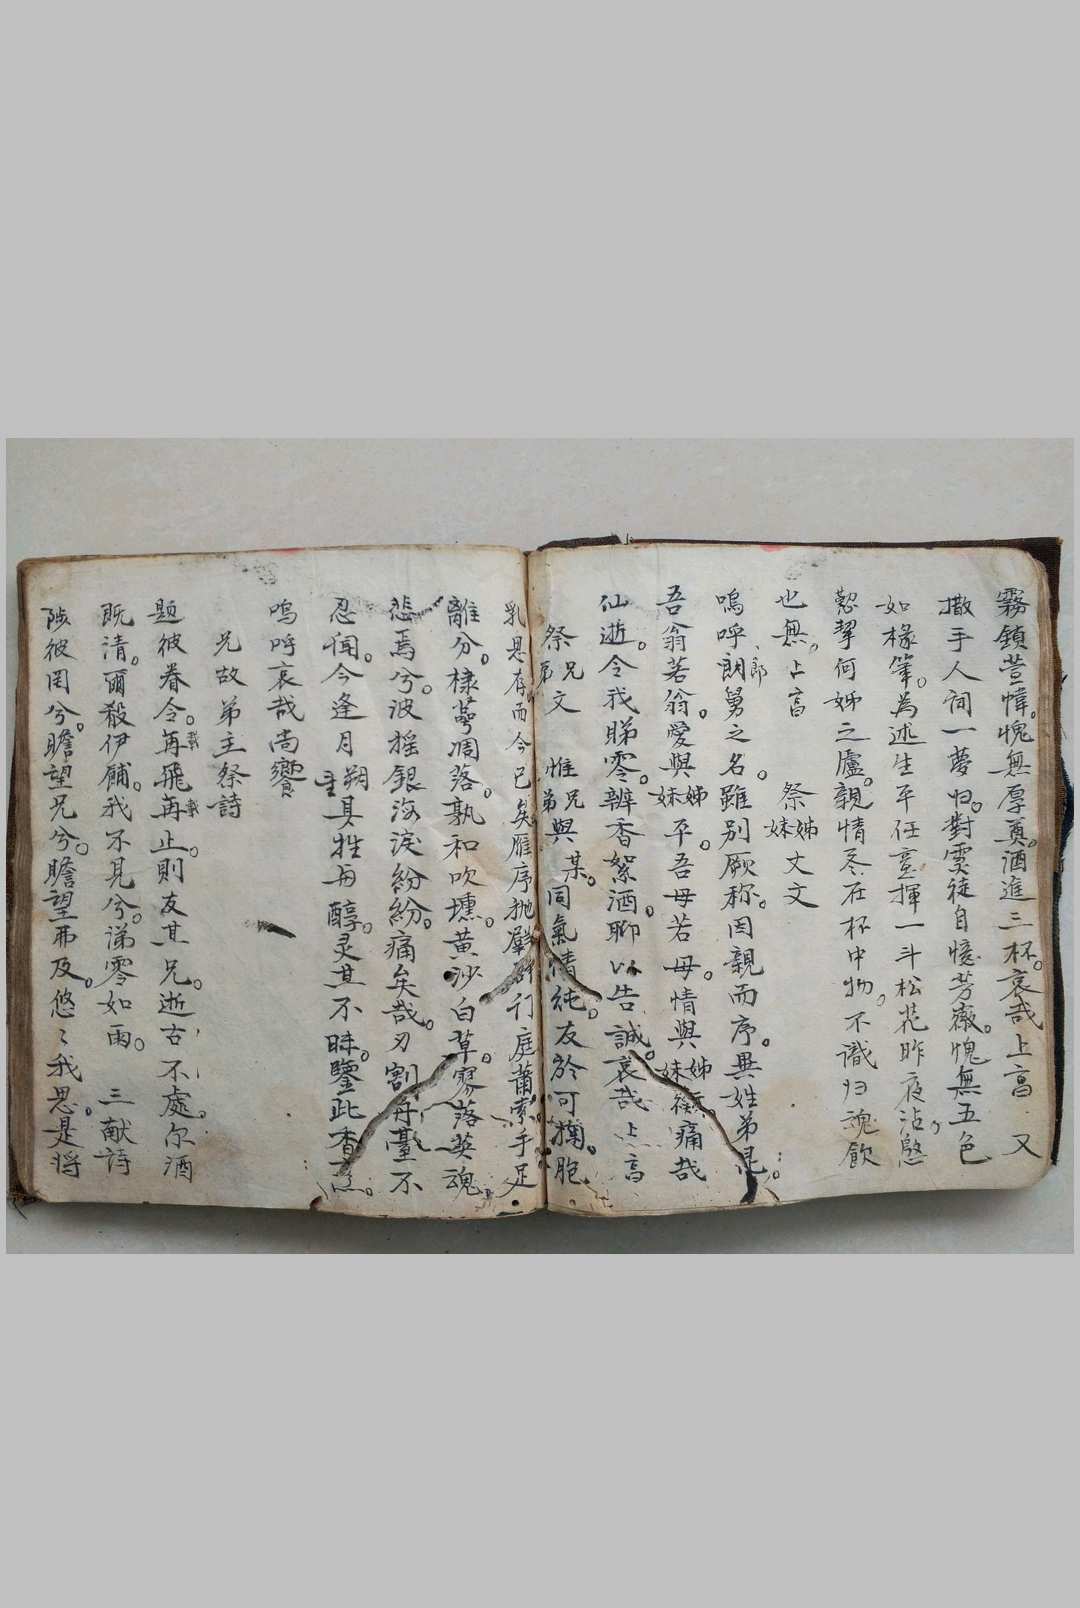 霧鎖萱幃。愧無厚奠。酒進三杯。哀哉上高 又
撒手人詞一夢归。對雲徒自憶芳薇。愧無五色
如椽筆。為述生平任意揮一斗松花昨夜沽。慇
懃挈何姊之廬。親情尽在杯中物。不識归魂飲
也無。上高 祭姊妹丈文
嗚呼朗郎舅之名。雖別厥称。因親而序。異姓弟兄。
吾翁若翁。愛與姊妹平。吾母若母。情與姊妹痛哉
仙逝。令我睇零。辦香絮酒。聊以告誠。哀哉上高
祭兄弟文 惟兄弟與某。同氣情純。友於可掬。胞
乳具存而今已矣雁序拋群 行庭蕭索手足
離分。棣萼凋落。孰和吹壎。黃沙白草。寥落英魂
悲焉兮。波摇銀海淚紛紛。痛矣哉。刃割 臺不
忍闻。今逢月朔 具牲与醇。灵其不昧。鑒此香
嗚呼哀哉尚饗
兄故弟主祭詩
题彼眷令。再載飛再載止。則友其兄。逝古不處。尔酒
既清。爾殺伊餔。我不見兮。涕零如雨。 三献詩
陟彼罔兮。瞻望兄兮。瞻望弗及。悠〻我思。是将